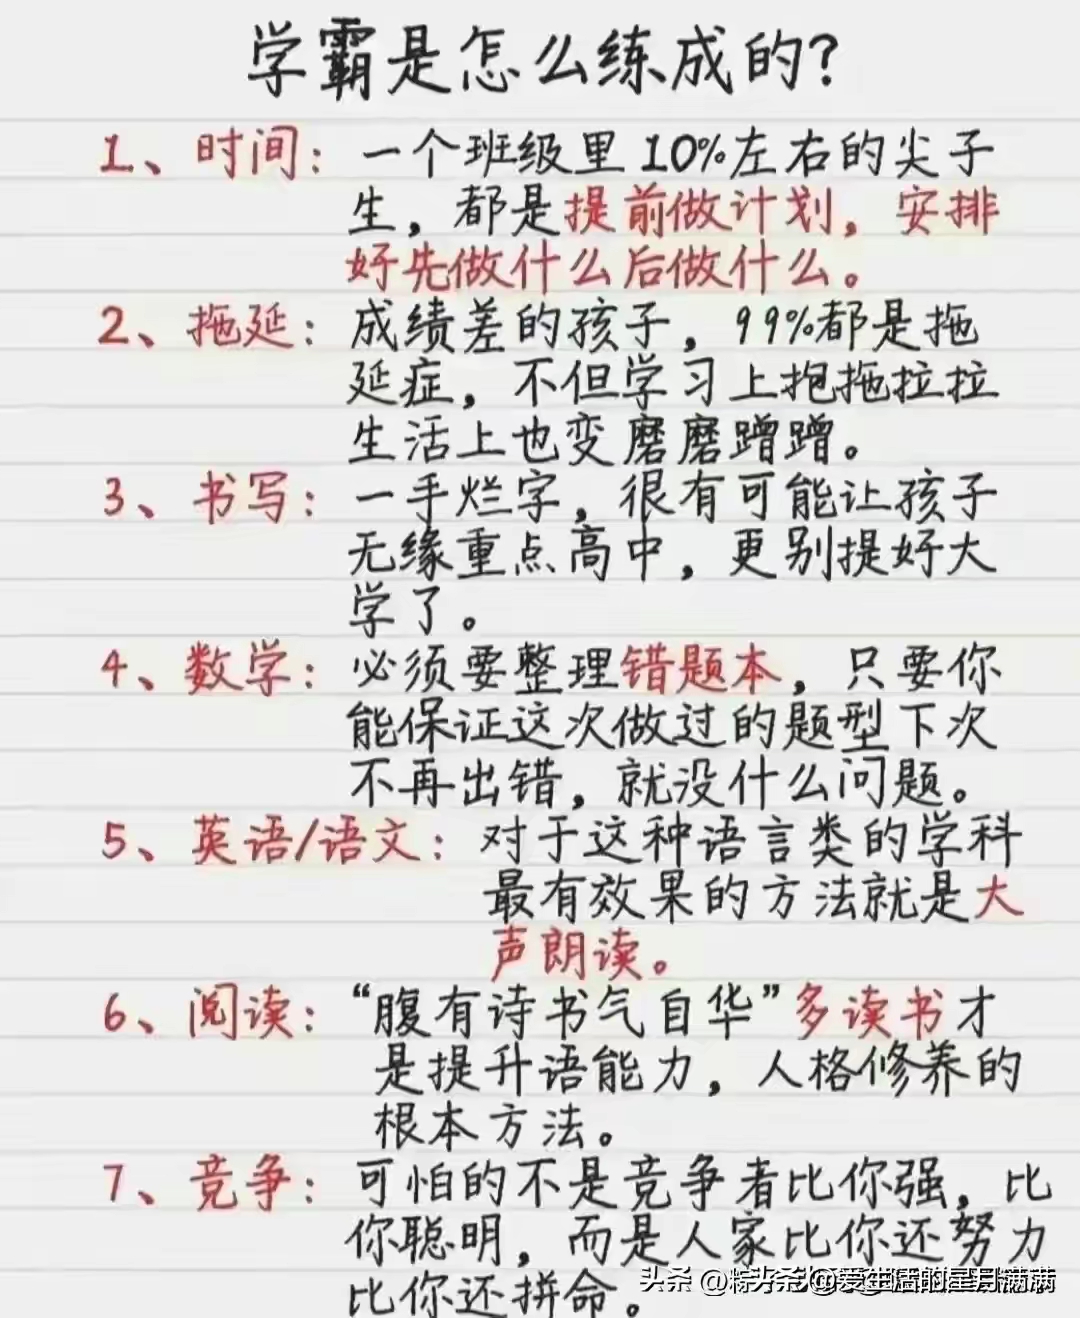 学霸是怎么练成的?
1、时间：一个班级里10%左右的尖子
生，都是提前做计划，安排
好先做什么后做什么。
2、拖延：成绩差的孩子，99%都是拖
延症，不但学习上抱拖拉拉
生活上也变磨磨蹭蹭。
3、书写：一手烂字，很有可能让孩子
无缘重点高中，更别提好大
学了。
4、数学：必须要整理错题本，只要你
能保证这次做过的题型下次
不再出错，就没什么问题。
5、英语/语文：对于这种语言类的学科
最有效果的方法就是大
声朗读。
6、阅读：“腹有诗书气自华”多读书才
是提升语能力，人格修养的
根本方法。
7、竞争：可怕的不是竞争者比你强，比
你聪明，而是人家比你还努力
比你还拼命。
头条 @爱生活的星月满满